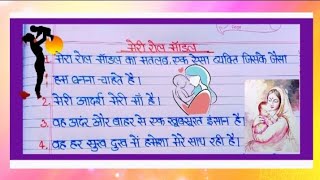 मेरी रोल मॉडल
1. मेरा रोल मॉडल का मतलब एक ऐसा व्यक्ति जिसके जैसा
हम बनना चाहते है।
2. मेरी आदर्श मेरी माँ हैं।
3. वह अंदर और बाहर से एक खूबसूरत इंसान हैं।
4. वह हर सुख दुख में हमेशा मेरे साथ रही हैं।